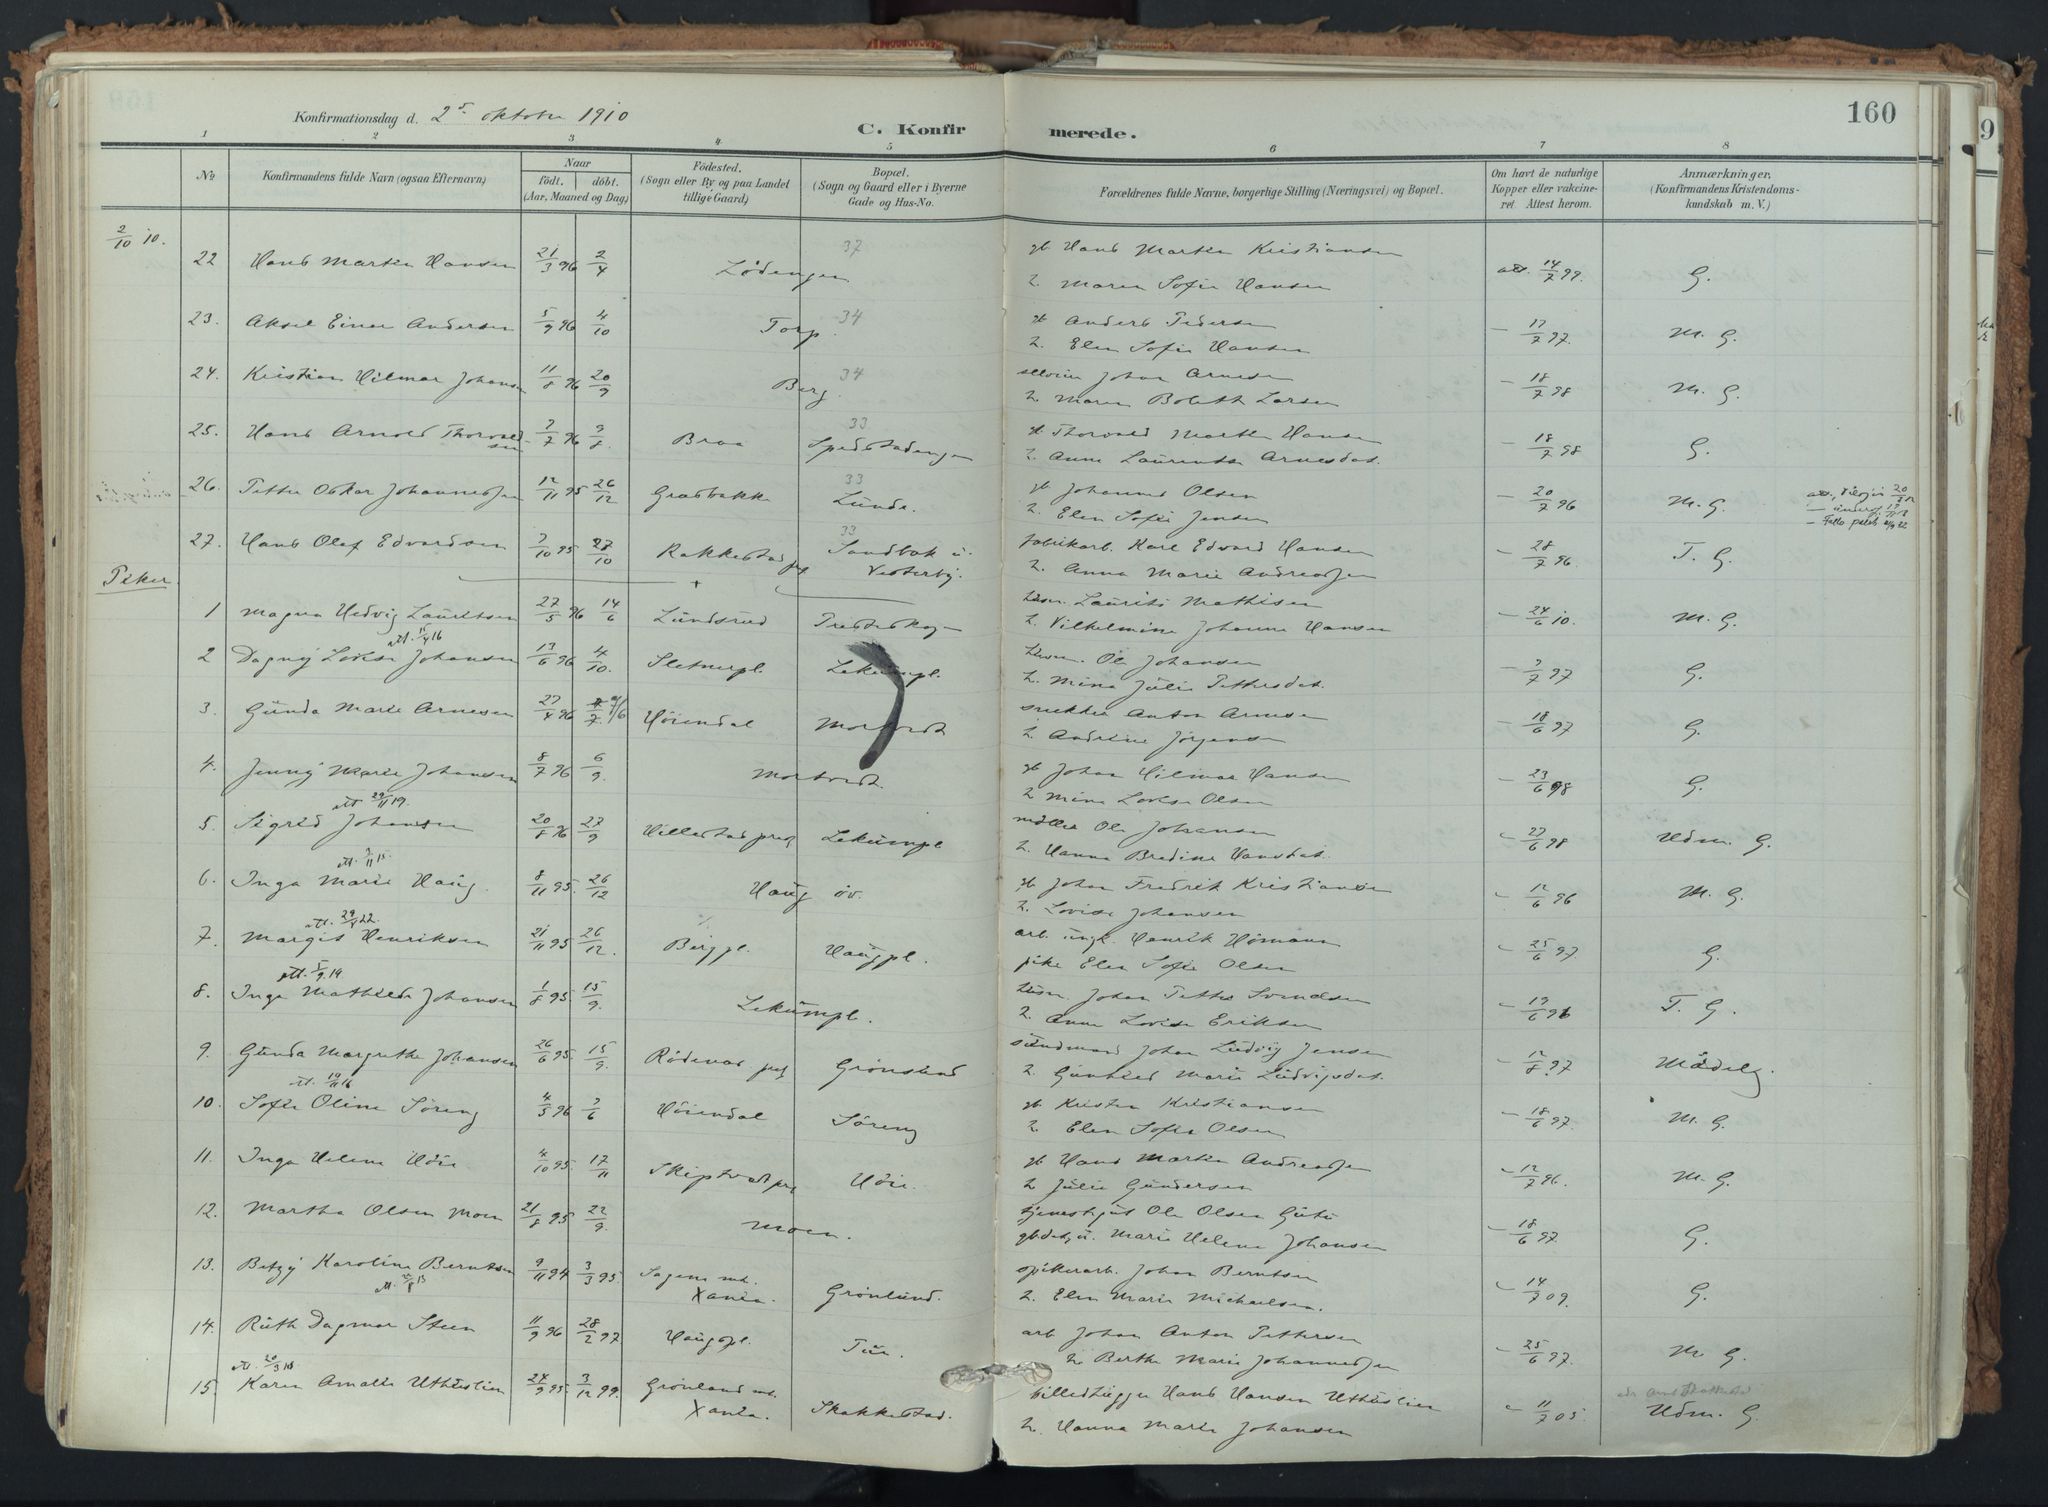 160
Konfirmationsdag d. 2 oktober 1910
C. Konfirmerede.
1 2 3 4 5 6 7 8
No
Konfirmandens fulde Navn (ogsaa Efternavn)
Naar
födt. döbt.
(Aar, Maaned og Dag)
Födested.
(Sogn eller By og paa Landet
tillige Gaard)
Bopæl.
(Sogn og Gaard eller i Byerne
Gade og Hus-No.
Forældrenes fulde Navne, borgerlige Stilling (Næringsvei) og Bopæl.
Om havt de naturlige
Kopper eller vakcine-
ret Attest herom.
Anmærkninger.
(Konfirmandens Kristendoms-
kundskab m. V.)
2/10 10.
22 Hans Martin Hansen 21/3 96 2/4 Lödengen 37 gb Hans Martin Kristiansen
2. Maren Sofie Hansen att. 14/7 99. G.
23. Aksel Einar Andersen 5/9 96 4/10 Torp 34 gb Anders Pedersen
2. Elen Sofie Hansen – 17/7 97. M. G.
24. Kristian Hilmar Johansen 11/8 96 20/9 Berg 34 Johan Arnesen
2. Maren Boleth Larsen – 18/7 98 M. G.
25. Hans Arnold Thorvaldsen 7/7 96 9/8. Braa 33 gb Thorvald Martin Hansen
2. Anne Laurentse Arnesdat. – 18/7 98 G.
26. Petter Oskar Johannessen 12/11 95 26/12 Grasbakke 33 Lunde. gb Johannes Olsen
2. Elen Sofie Jensen – 20/7 96 M. G.
27. Hans Olaf Edvardsen 7/10 95 27/10 Rakkestad 33 Sandbak u. Vesterby. fabrikarb. Karl Edvard Hansen
2. Anna Marie Andreassen – 28/7 96. T. G.
Piker.
1 Magna Hedvig Lauritsen 27/5 96 14/6 Lundsrud Laurits Mathisen
2. Vilhelmine Johanne Hansen – 24/6 10. M. G.
att. 15/4 16
2 Dagny Lovise Johansen 13/6 96 4/10. Sletnerpl. Lekumpl. Ole Johansen
2. Mina Julie Pettersdat. – 7/7 97 G.
3. Gunda Marie Arnesen 27/4 96 Höiendal Mortvedt snekker Anton Arnesen
2. Andrine Jörgensen – 18/6 97 G.
4. Jenny Marie Johansen 8/7 96 6/9. Mortvedt. gb Johan Hilmar Hansen
2 Mina Lovise Olsen – 23/6 98 G.
att 29/11 19.
5. Sigrid Johansen 20/8 96 27/9 Hillestad Lekumpl möller Ole Johansen
2. Hanna Bredine Hansdat. – 27/6 98 Udm. G.
6. Inga Marie Haug. 8/11 95. 26/12 Haug öv. gb Johan Fredrik Kristiansen
2. Lovise Johansen – 12/6 96 M. G.
att. 29/4 22.
7. Margit Henriksen 21/11 95 26/12. Bergpl. Haugpl. arb. ungk. Henrik
pike Elen Sofie Olsen – 25/6 97 G.
att. 5/9 19
8. Inga Mathilde Johansen 1/8 95. 15/9. Lekumpl. Johan Petter Svendsen
2. Anne Lovise Eriksen – 19/6 96 T. G.
9. Gunda Margrethe Johansen 26/6 95. 15/9. Rödenes Grönlund Johan Ludvig Jensen
2. Gunhild Marie Ludvigsdat. – 12/8 97 Mådelg.
att. 19/11 16
10. Sofie Oline Söreng 4/5 96 7/6 Höiendal Söreng gb. Kristen Kristiansen
2. Elen Sofie Olsen – 18/6 97. M. G.
11. Inga Helene Höie 4/10 95. 17/11 Skiptvedt Höie. gb Hans Martin Andreassen
2 Julie Gundersen – 12/7 96. M. G.
12. Martha Olsen Moen 21/8 95 22/9. Moen. tjenestgut Ole Olsen
Marie Helene Johansen – 18/6 97. G.
13. Betzy Karoline Berntsen 9/11 94 3/3 95. Sagene mh. Xania. Grönlund. spikerarb. Johan Berntsen
2. Elen Marie Michaelsen. – 14/7 09. G.
14. Ruth Dagmar Steen 11/9 96 28/2 97 Haugpl. Tue. arb Johan Anton Pettersen
2. Berthe Marie Johannessen – 25/6 97. M. G.
att. 20/3
15. Karen Amalie Uthuslien 24/9 95. 3/12 99. Grönland mh. Xania. Skakkestad. Hans Hansen Uthuslien
2. Hanna Marie Johansen – 11/7 05. Udm. G.